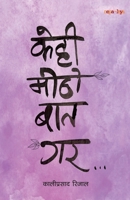 केही
मीठो
बात
गर...
कालीप्रसाद रिजाल